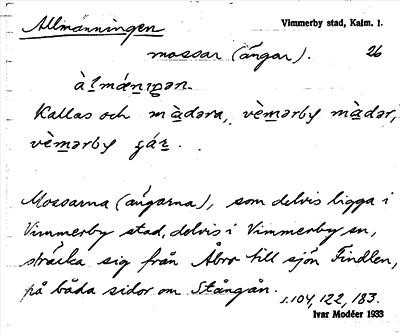 Allmänningen
Vimmerby stad, Kalm. l.
mossar (ängar). 26
Kallas och màdəra, vèmərby màdər,
vèmərby
Mossarna (ängarna), som delvis ligga i
Vimmerby stad, delvis i Vimmerby sn,
sträcka sig från Åbro till sjön Findlen,
på båda sidor om Stångån.
s. 104, 122, 183.
Ivar Modéer 1933